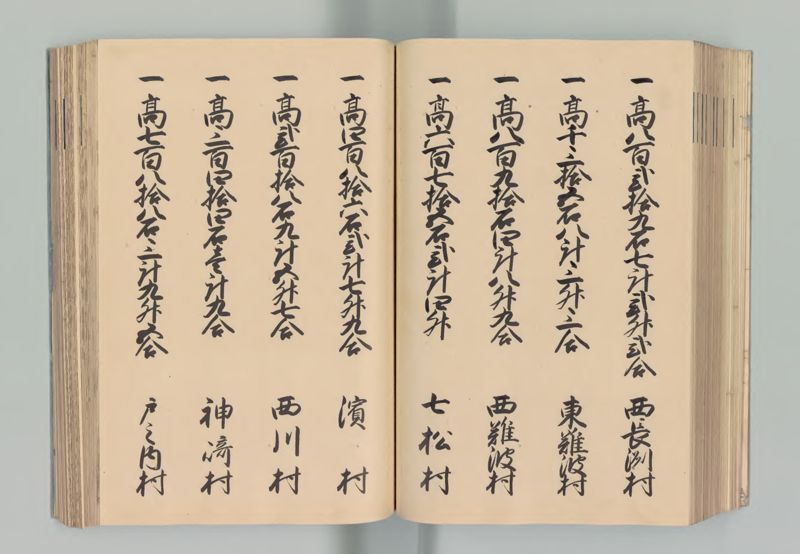 一高八百弐拾九石七斗弐升弐合 西長洲村
一高千三拾五石八斗三升三合 東難波村
一高八百九拾石四斗八升九合 西難波村
一高六百七拾五石弐斗四升 七松村
一高四百八拾六石弐斗七升九合 濱村
一高弐百拾八石九斗五升七合 西川村
一高三百四拾四石壱斗九合 神﨑村
一高七百八拾八石三斗九升五合 戸之内村